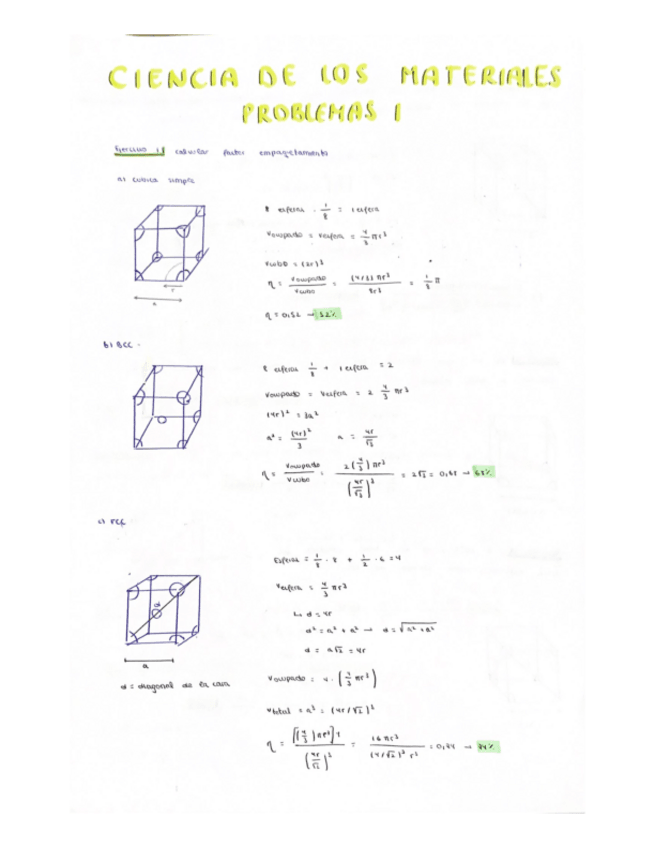 CIENCIA DE LOS MATERIALES
PROBLEMAS 1
Ejercicio 1 calcular factor empaquetamiento
a) cubica simple
8 esferas · 1/8 = 1 esfera
Vocupado = Vesfera = 4/3 πr³
Vcubo = (2r)³
η = Vocupado/Vcubo = (4/3) πr³/8r³ = 1/3 π
r
a
η = 0,52 → 52%
b) BCC
8 esferas 1/8 + 1 esfera = 2
Vocupado = Vesfera = 2 4/3 πr³
(4r)² = 3a²
a² = (4r)²/3 a = 4r/√3
η = Vocupado/Vcubo = 2(4/3)πr³/(4r/√3)³ = 2√3 = 0,68 → 68%
c) FCC
Esferas = 1/8 · 8 + 1/2 · 6 = 4
Vesfera = 4/3 πr³
d
↳ d = 4r
d² = a² + a² → d = √a² + a²
d = a√2 = 4r
a
Vocupado = 4 · (4/3 πr³)
d = diagonal de la cara
Vtotal = a³ = (4r/√2)³
η = [(4/3)πr³]4/(4r/√2)³ = 16πr³/(4/√2)³ r³ = 0,74 → 74%